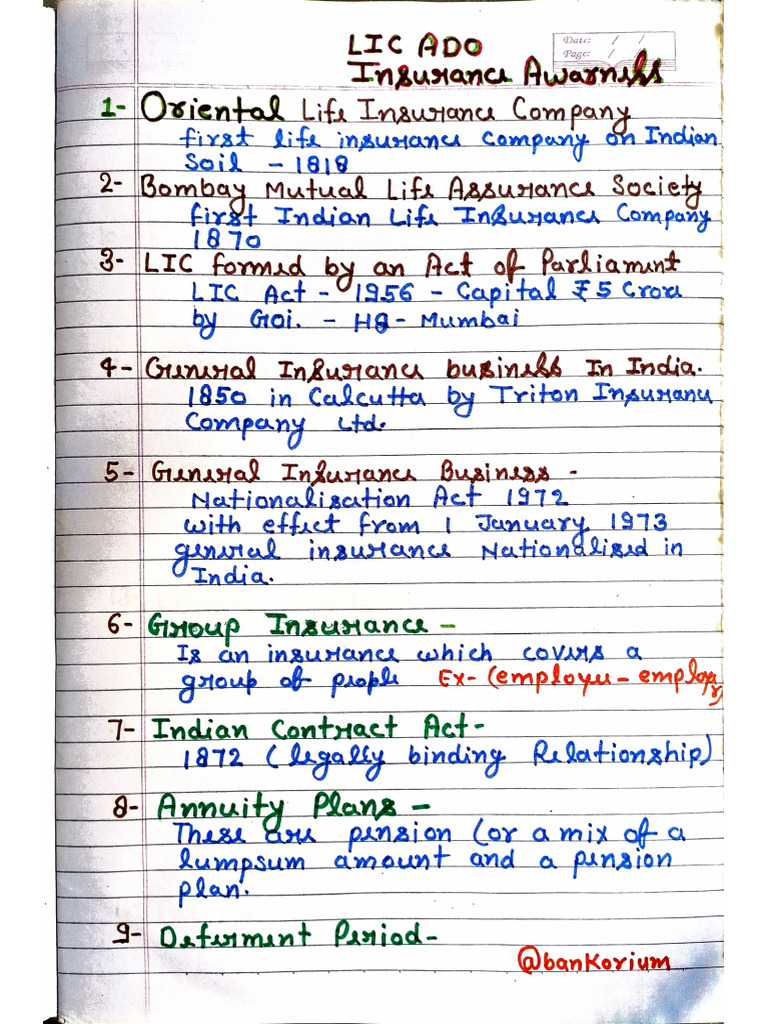 LIC ADO
Date: / /
Page:
Insurance Awarness
1- Oriental Life Insurance Company
first life insurance company on Indian
Soil - 1818
2- Bombay Mutual Life Assurance Society
first Indian Life Insurance Company
1870
3- LIC formed by an Act of Parliament
LIC Act - 1956 - Capital ₹5 Crore
by GOI. - HQ - Mumbai
4- General Insurance business In India.
1850 in Calcutta by Triton Insurance
Company Ltd.
5- General Insurance Business -
Nationalisation Act 1972
with effect from 1 January 1973
general insurance Nationalised in
India.
6- Group Insurance -
Is an insurance which covers a
group of people Ex- (employee - employer)
7- Indian Contract Act-
1872 (legally binding Relationship)
8- Annuity Plans -
These are pension (or a mix of a
lumpsum amount and a pension
plan.
9- Deferment Period-
@banKorium